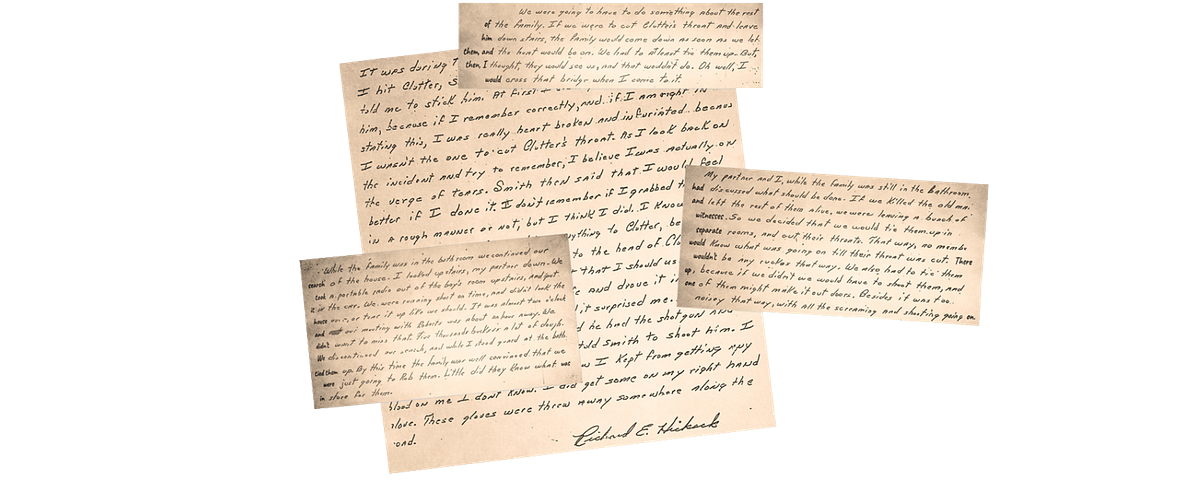 We were going to have to do something about the rest
of the family. If we were to cut Clutter's throat and leave
him down stairs, the family would come down as soon as we left
them, and the hunt would be on. We had to atleast tie them up. But,
then, I thought, they would see us, and that wouldn't do. Oh well, I
would cross that bridge when I come to it.
It was during
I hit Clutter,
told me to stick him. At first I
him, because if I remember correctly, and if I am right in
stating this, I was really heart broken and infuriated becaus
I wasn't the one to cut Clutter's throat. As I look back on
the incident and try to remember, I believe I was actually on
the verge of tears. Smith then said that I would feel
better if I done it. I don't remember if I grabbed
in a rough manner or not, but I think I did. I know
anything to Clutter,
to the head of
that I should
and drove it in
it surprised me.
he had the shotgun and
told Smith to shoot him. I
I kept from getting any
blood on me I dont know. I did get some on my right hand
glove. These gloves were threw away somewhere along the
Richard E. Hickock
My partner and I, while the family was still in the bathroom
had discussed what should be done. If we killed the old man
and left the rest of them alive, we were leaving a bunch of
witnesses. So we decided that we would tie them up in
separate rooms, and cut their throats. That way, no membe
would know what was going on till their throat was cut. There
wouldn't be any ruckas that way. We also had to tie them
up, because if we didn't we would have to shoot them, and
one of them might make it out doors. Besides it was too
noisey that way, with all the screaming and shooting going on
While the family was in the bathroom we continued our
search of the house. I looked upstairs, my partner down. We
took a portable radio out of the boy's room upstairs, and put
it in the car. We were running short on time, and didn't look the
house over, or tear it up like we should. It was almost two o'clock
and our meeting with Roberts was about hours away. We
didn't want to miss that. Five thousand bucks is a lot of dough.
We discontinued our search, and while I stood guard at the bath
tied them up. By this time the family was well convinced that we
were just going to Rob them. Little did they know what was
in store for them.